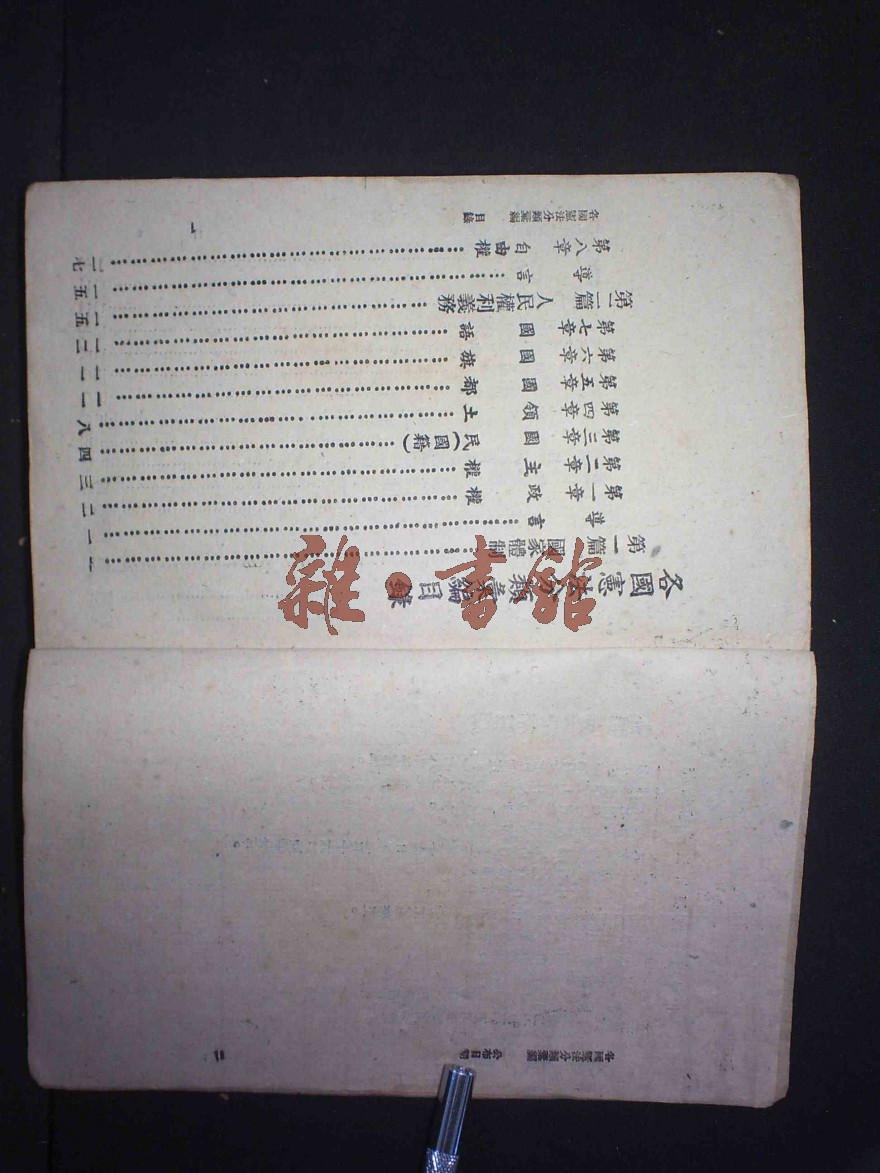 各國憲法分類彙編目錄
第一篇 國家體制……一
導言……一
第一章 政權……二
第二章 主權……三
第三章 國民(國籍)……四
第四章 領土……八
第五章 國都……一一
第六章 國旗……一一
第七章 國語……一二
第二篇 人民權利義務……一五
導言……一五
第八章 自由權……二七
各國憲法分類彙編 目錄 一
各國憲法分類彙編 公布日期
雜·書館